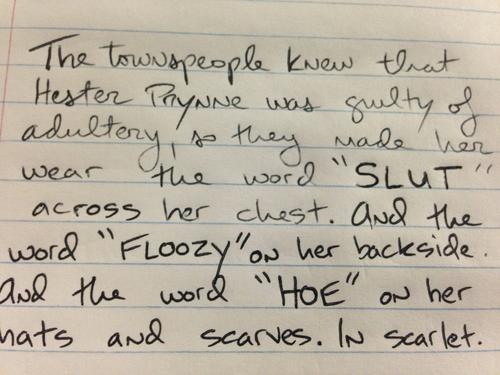 The townspeople knew that
Hester Prynne was guilty of
adultery, so they made her
wear the word "SLUT"
across her chest. And the
word "FLOOZY" on her backside.
And the word "HOE" on her
hats and scarves. In scarlet.